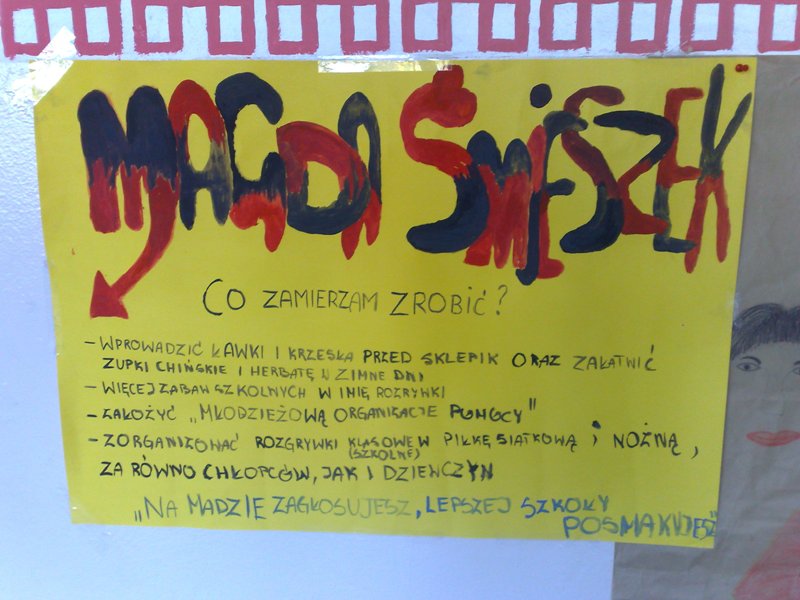 MAGDA ŚWIESZEK
CO ZAMIERZAM ZROBIĆ?
- WPROWADZIĆ ŁAWKI I KRZESŁA PRZED SKLEPIK ORAZ ZAŁATWIĆ
ZUPKI CHIŃSKIE I HERBATĘ W ZIMNE DNI
- WIĘCEJ ZABAW SZKOLNYCH W IMIĘ ROZRYWKI
- ZAŁOŻYĆ „MŁODZIEŻOWĄ ORGANIZACJE POMOCY"
- ZORGANIZOWAĆ ROZGRYWKI KLASOWE W PIŁKĘ SIATKOWĄ i NOŻNĄ,
(SZKOLNE)
ZA RÓWNO CHŁOPCÓW, JAK I DZIEWCZYN
„NA MADZIĘ ZAGŁOSUJESZ, LEPSZEJ SZKOŁY
POSMAKUJESZ"